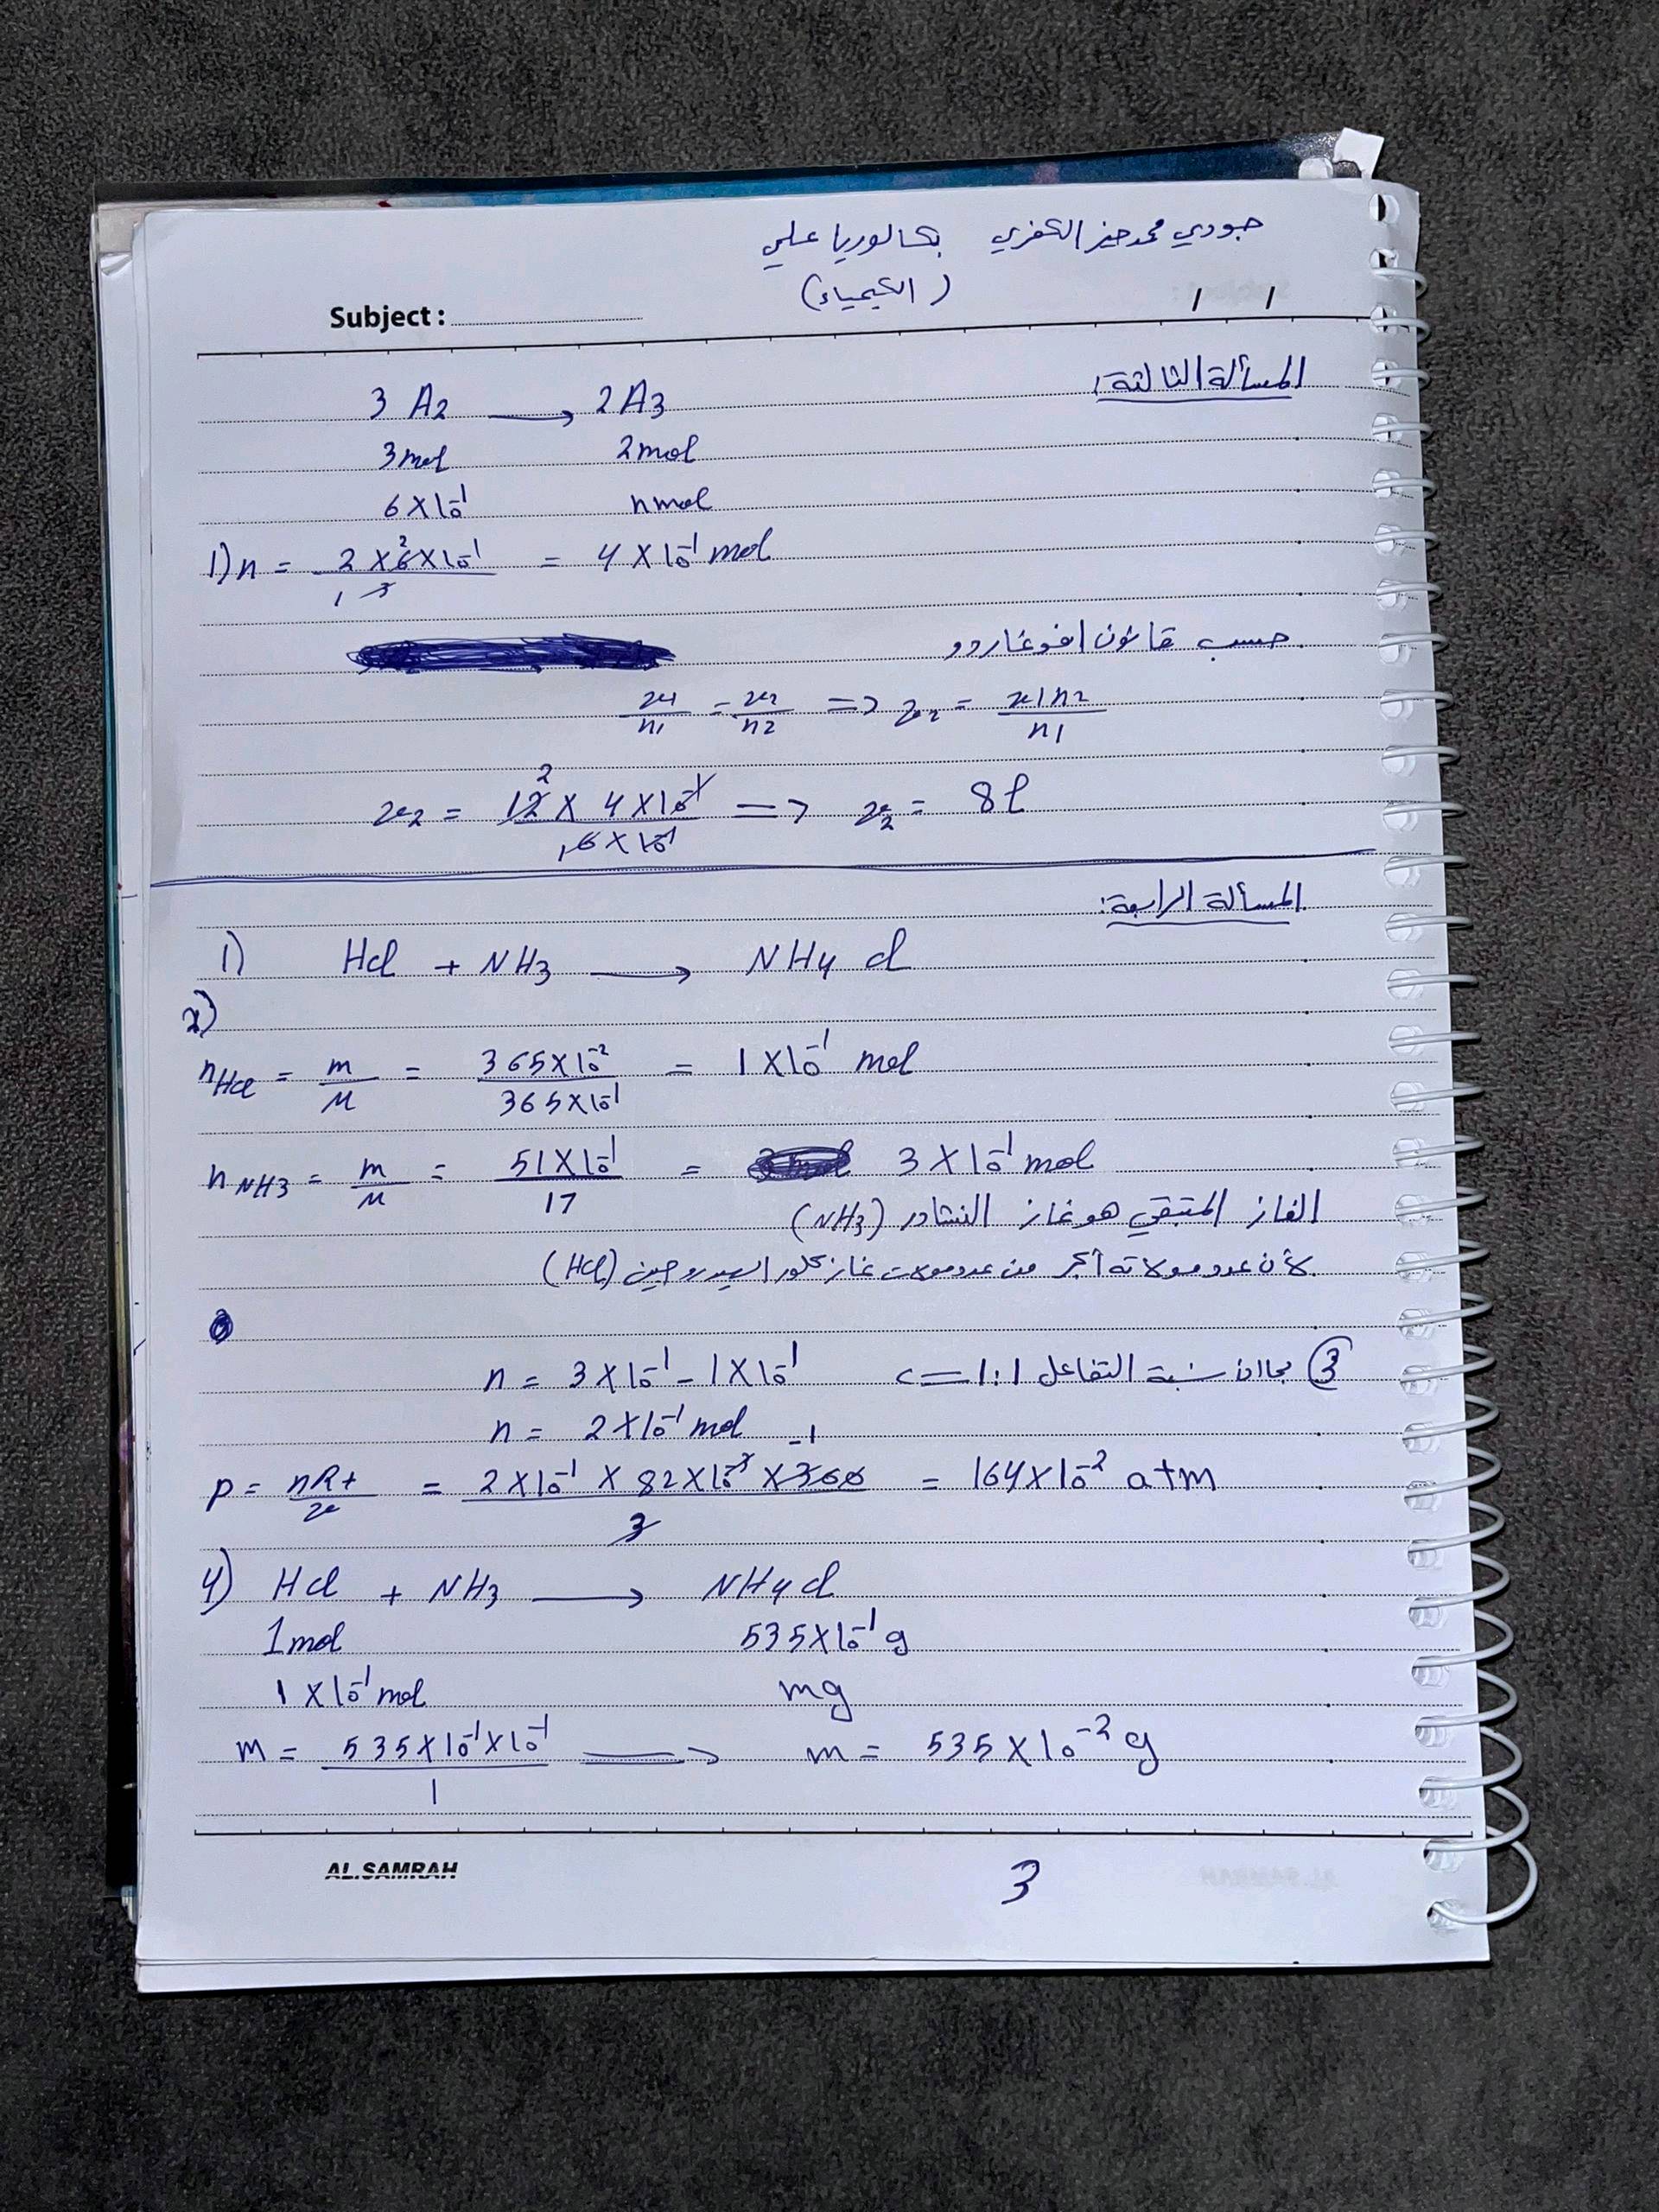 جودي محمد خير الكفري بكالوريا علمي
(الكيمياء)
Subject :
/ /
المسألة الثالثة:
3 A2 → 2A3
3mol 2mol
6×10^-1 nmol
1) n = 2×6×10^-1 / 3 = 4×10^-1 mol
حسب قانون افوغاردو
v1/n1 = v2/n2 => v2 = v1n2/n1
v2 = 12 × 4×10^-1 / 6×10^-1 => v2 = 8l
المسألة الرابعة:
1) Hcl + NH3 → NH4 cl
2)
nHcl = m/M = 365×10^-2 / 365×10^-1 = 1×10^-1 mol
nNH3 = m/M = 51×10^-1 / 17 = 3×10^-1 mol
الغاز المتبقي هو غاز النشادر (NH3)
لأن عدد مولاته أكبر من عدد مولات غاز كلور الهيدروجين (Hcl)
③ بما ان نسبة التفاعل 1:1 <= n = 3×10^-1 - 1×10^-1
n = 2×10^-1 mol
P = nRt/v = 2×10^-1 × 82×10^-3 × 300 / 3 = 164×10^-2 atm
4) Hcl + NH3 → NH4cl
1mol 535×10^-1 g
1×10^-1 mol mg
m = 535×10^-1×10^-1 / 1 => m = 535×10^-2 g
AL.SAMRAH
3